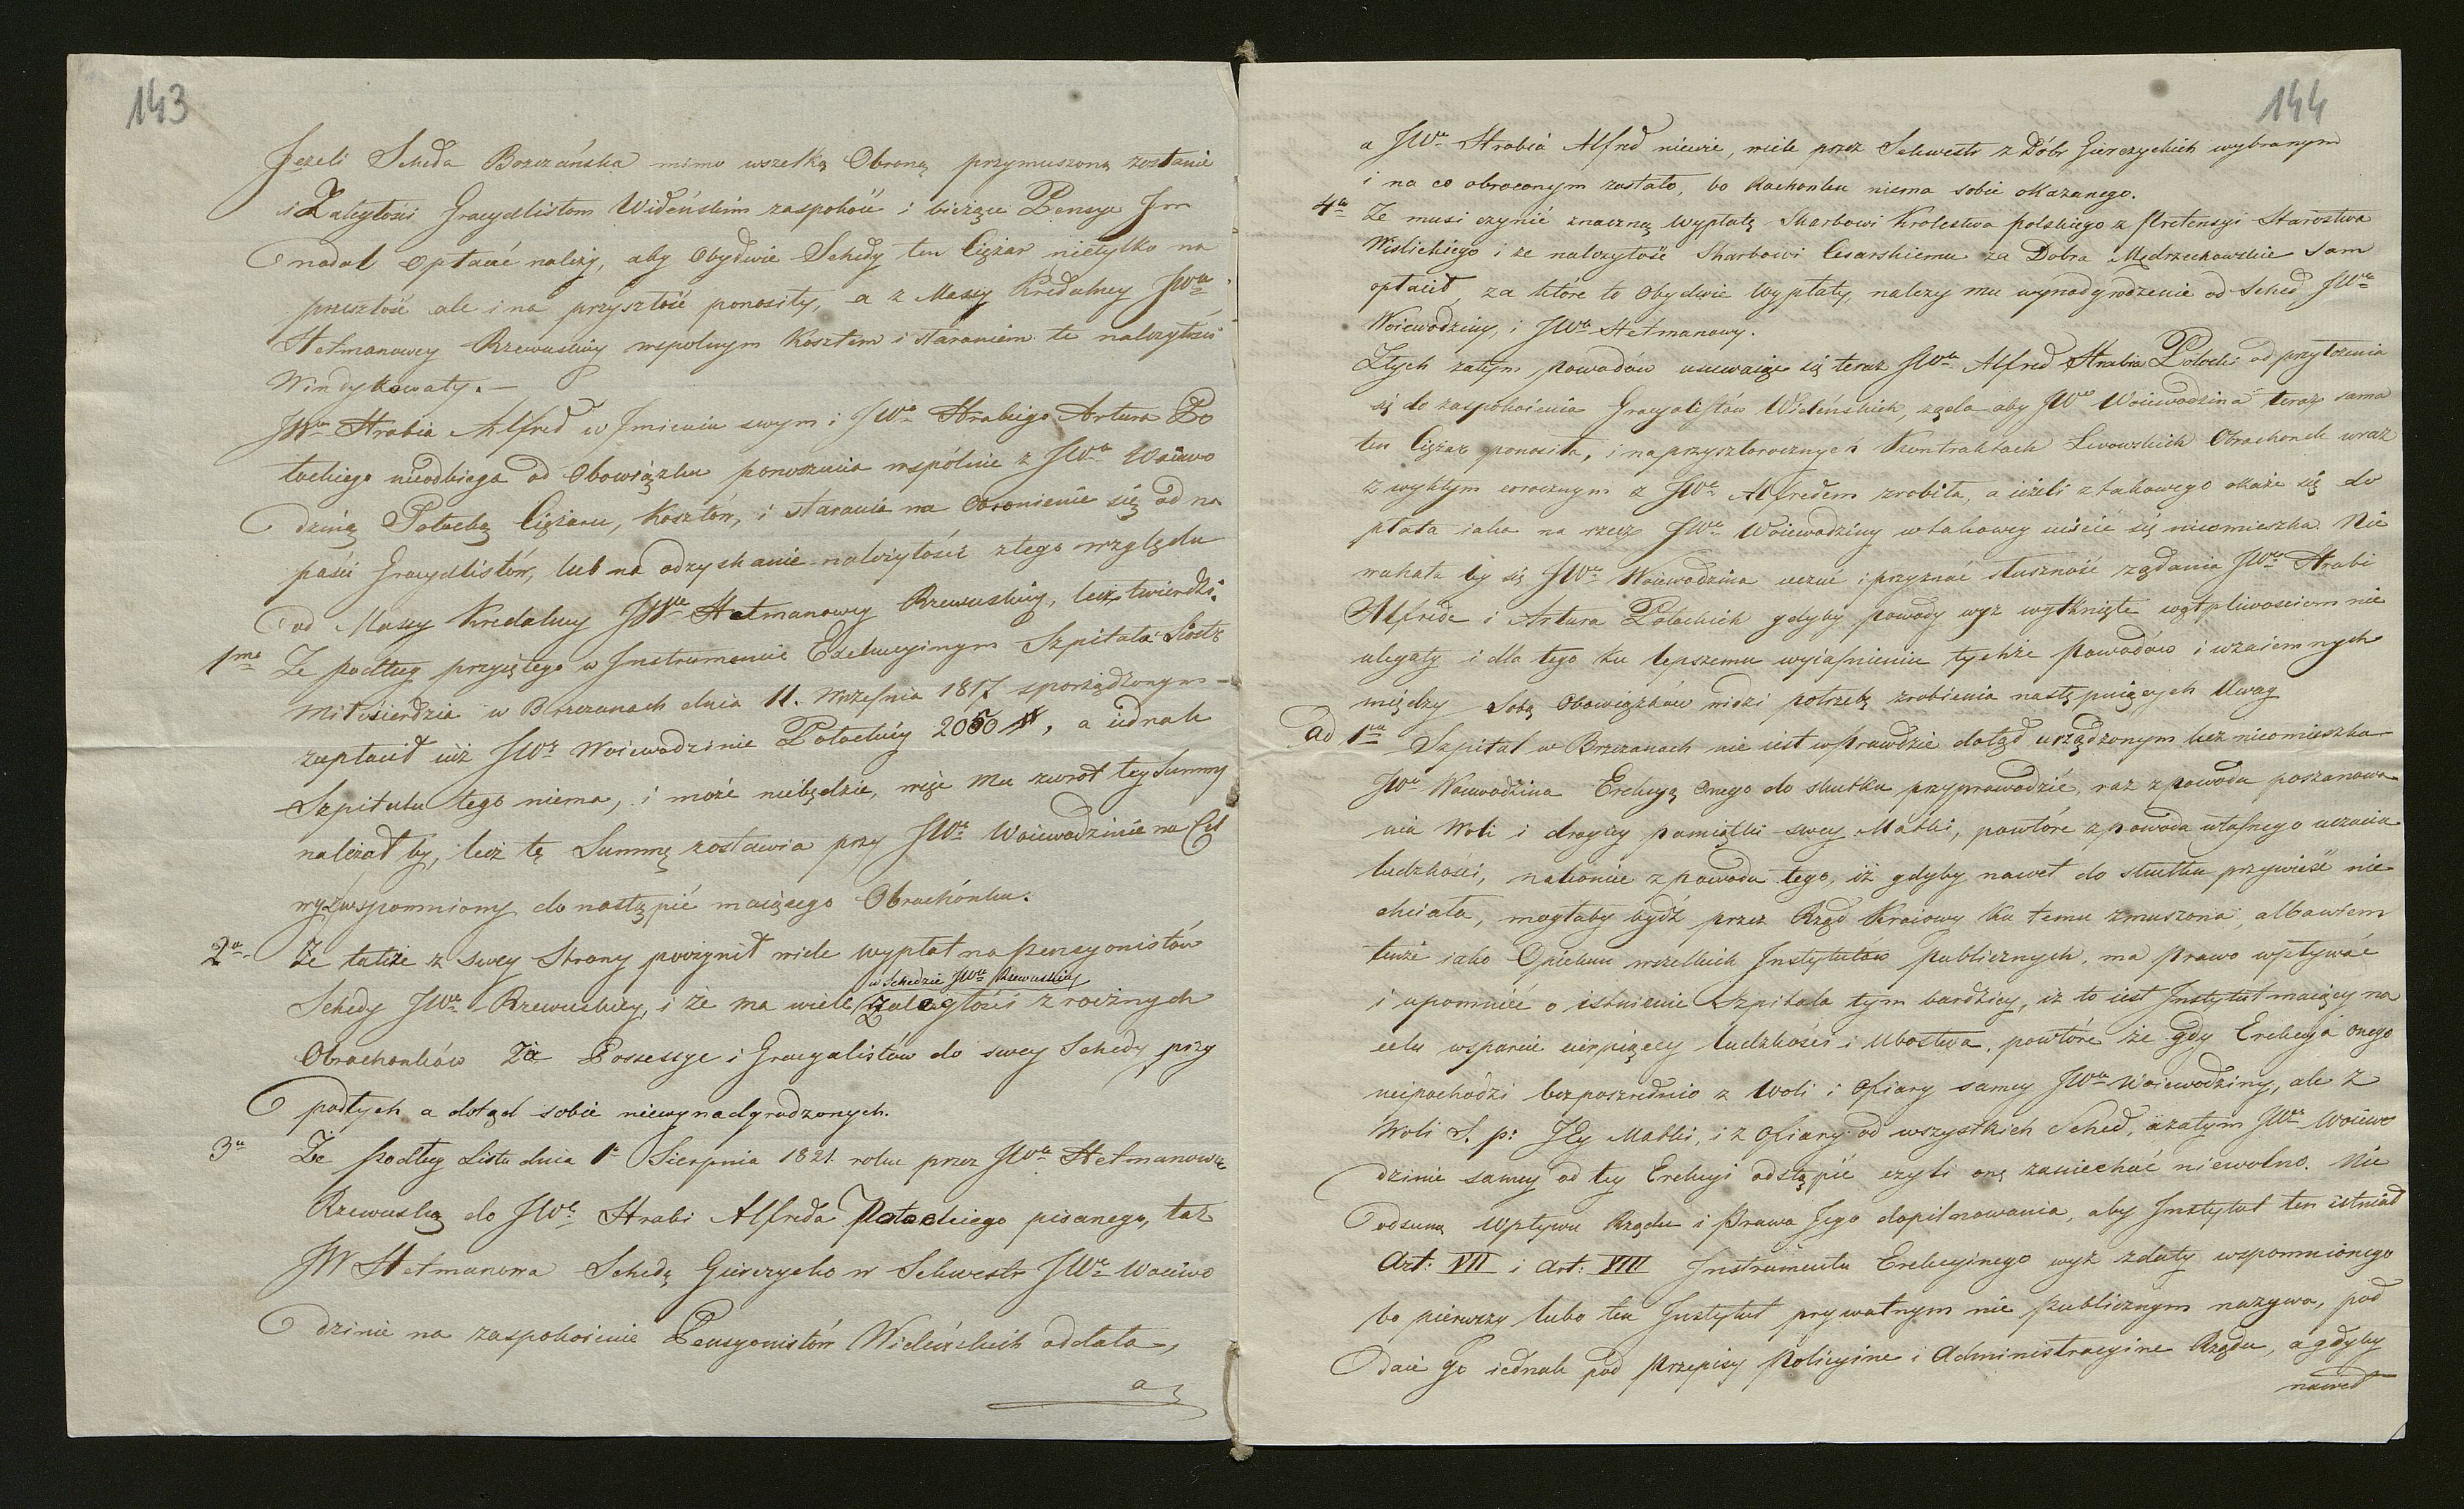 143
Jeżeli Scheda Brzezańska mimo wszelką Obronę przymuszoną zostanie
i Zaległości Gracyalistom Wideńskim zaspokoić i bieżące Pensye Im
nadal opłacać należy, aby Obydwie Schedy ten Ciężar nietylko na
przeszłość ale i na przyszłość ponosiły, a z Massy Kredalney JWey
Hetmanowey Rzewuskiey wspolnym Kosztem i staraniem te należytości
Windykowały. –
JWny Hrabia Alfred w Imieniu swym i JWo Hrabiego Artura Po
tockiego nieodbiega od Obowiązku ponoszenia wspólnie z JWą Woiewo
dziną Potocką Ciężaru, Kosztów, i starania na obronienie się od na
paści Gracyalistów, lub na odzyskanie należytości z tego względu
od Massy Kredalney JWey Hetmanowey Rzewuskiey, lecz twierdzi.
1mo Że podług przyiętego w Instrumencie Erekcyinym Szpitala Siostr
Miłosierdzia w Brzezanach dnia 11. Września 1817 sporządzonym –
zapłacił iuż JWey Woiewodzinie Potockiey 2050 #, a iednak
Szpitalu tego niema, i może niebędzie, więc Mu zwrot tey Summy
należał by, lecz tę Summę zostawia przy JWey Woiewodzinie na Cel
wyżwspomniony do nastąpić maiącego Obrachónku.
2o Że także z swey Strony poczynił wiele wypłat na pensyonistów
w Schedzie JWey Rzewuskiey
Schedy JWey Rzewuskiey, i że ma wiele Zaległości z rożnych
Obrachonków Za Possessye i Gracyalistów do swey Schedy przy
padłych a dotąd sobie niewynadgrodzonych.
3o Że podług Listu dnia 1o Sierpnia 1821. roku przez JWą Hetmanowę
Rzewuską do JWo Hrabi Alfreda Potockiego pisanego, taż
JW Hetmanowa Schedę Gierczycko w Sekwestr JWey Woiewo
dzinie na zaspokoienie Pensyonistów Wideńskich oddała,
a
144
a JWny Hrabia Alfred niewie, wiele przez Sekwestr z Dóbr Gierczyckich wybranym
i na co obroconym zostało, bo Rachonku niema sobie okazanego.
4to Że musi czynić znaczną wypłatę Skarbowi Krolestwa polskiego z Pretensyi Starostwa
Wislickiego i że należytość Skarbowi Cesarskiemu za Dobra Mędrzechowskie Sam
opłacił, za które to Obydwie Wypłaty, należy mu wynadgrodzenie od Sched JWey
Woiewodziny, i JWey Hetmanowy.
Z tych zatym powodów usuwaiąc się teraz JWny Alfred Hrabia Potocki od przyłożenia
się do zaspokoienia Gracyalistów Wideńskich, ząda aby JWa Woiewodzina teraz sama
ten Ciężar ponosiła, i na przyszłorocznych Kontraktach Lwowskich Obrachonek wraz
z wykłym corocznym z JWym Alfredem zrobiła, a ieżeli z takowego okaże się do
płata iaka na rzecz JWey Woiewodziny w takowey uiścić się nieomieszka. Nie
wahała by się JWa Woiewodzina uczuć i przyznać słuszność żądania JWch Hrabi
Alfreda i Artura Potockich gdyby powody wyż wytknięte wątpliwościom nie
ulegały i dla tego ku lepszemu wyiaśnieniu tychże Powodów i wzaiemnych
między Sobą Obowiązków widzi potrzebę zrobienia następuiących Uwag
Ad 1um Szpital w Brzezanach nie iest wprawdzie dotąd urządzonym lecz nieomieszka
JWa Woiewodzina Erekcyą onego do skutku przyprowadzić, raz z powodu poszanowa
nia Woli i drogiey pamiątki swey Matki, powtóre z powodu własnego uczucia
ludzkości, nakoniec z powodu tego, iż gdyby nawet do skutku przywieść nie
chciała, mogłaby bydź przez Rząd Kraiowy Ku temu zmuszona, albowiem
tenże iako Opiekun wszelkich Instytutów Publicznych, ma Prawo wpływać
i upomnieć o istnienie Szpitala tym bardziey, iż to iest Instytut maiący na
celu wsparcie cierpiącey ludzkości i Ubostwa, powtóre że gdy Erekcyja onego
niepochodzi bezposzrednio z Woli i Ofiary samey JWey Woiewodziny, ale z
Woli S. p: Jey Matki, i z Ofiary od wszystkich Sched, azatym JWey Woiewo
dzinie samey od tey Erekcyi odstąpić czyli onę zaniechać niewolno. Nie
odsuną Wpływu Rządu i Prawa Jego dopilnowania, aby Instytut ten istniał
Art: VII i Art: VIII Instrumentu Erekcyinego wyż z daty wspomnionego
bo pierwszy lubo ten Instytut prywatnym nie Publicznym nazywa, pod
daie go iednak pod Przepisy Policyine i Administracyine Rządu, a gdyby
nawet